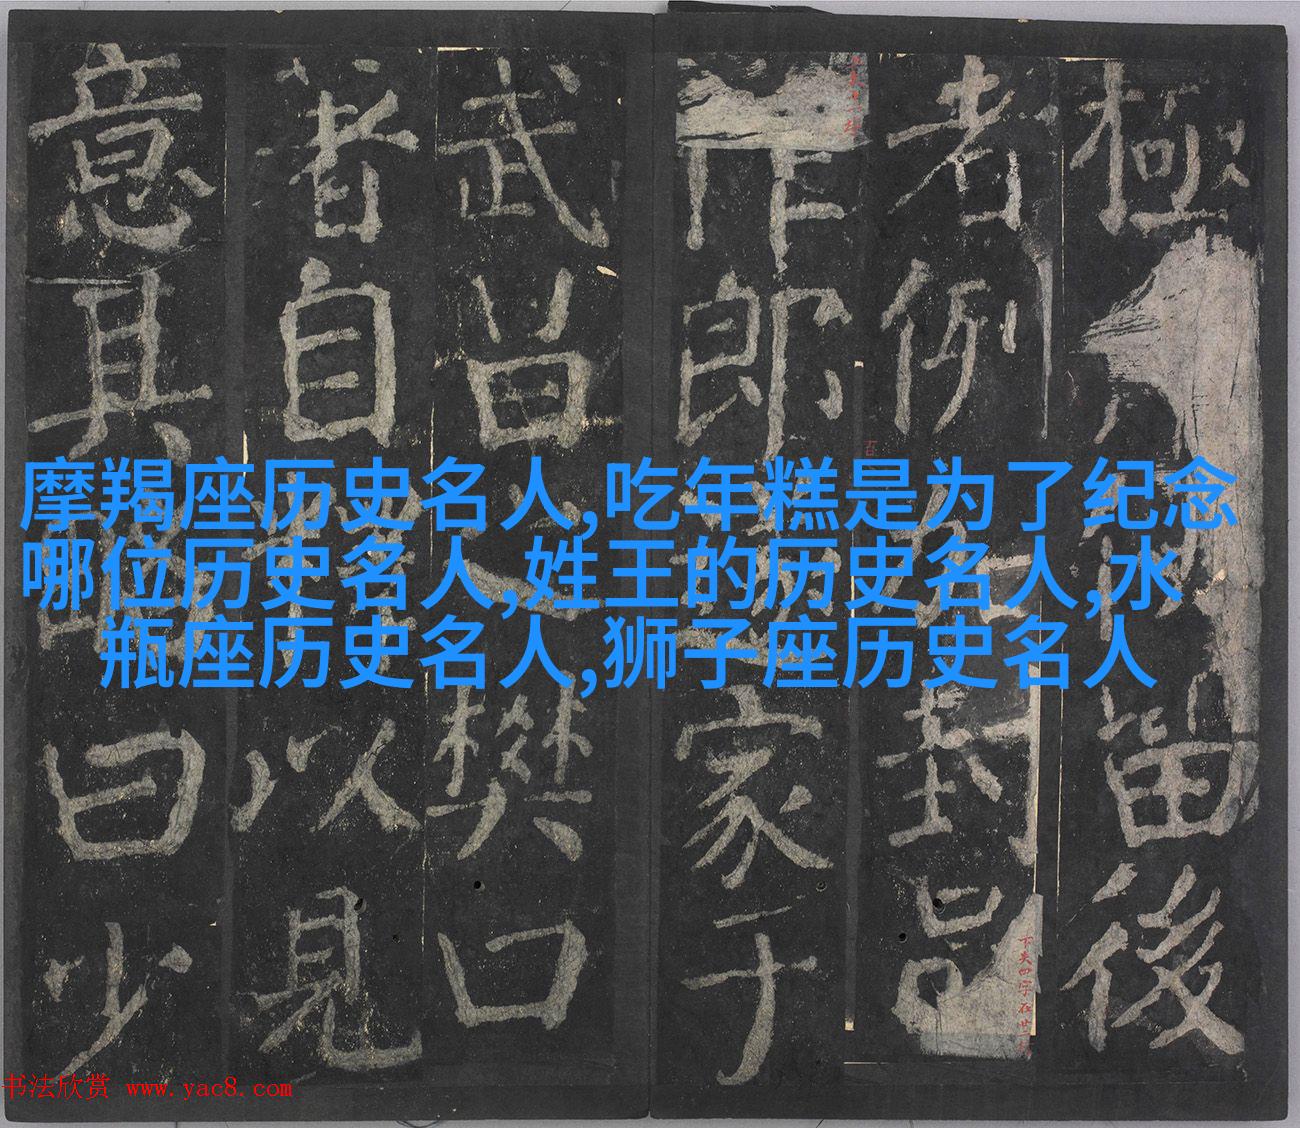 極留後
者例封
作郎家于
武昌之樊口
著自以見
意其曰少
摩羯座历史名人,吃年糕是为了纪念
哪位历史名人,姓王的历史名人,水
瓶座历史名人,狮子座历史名人
下失四字在廿
书法欣赏 www.yac8.com